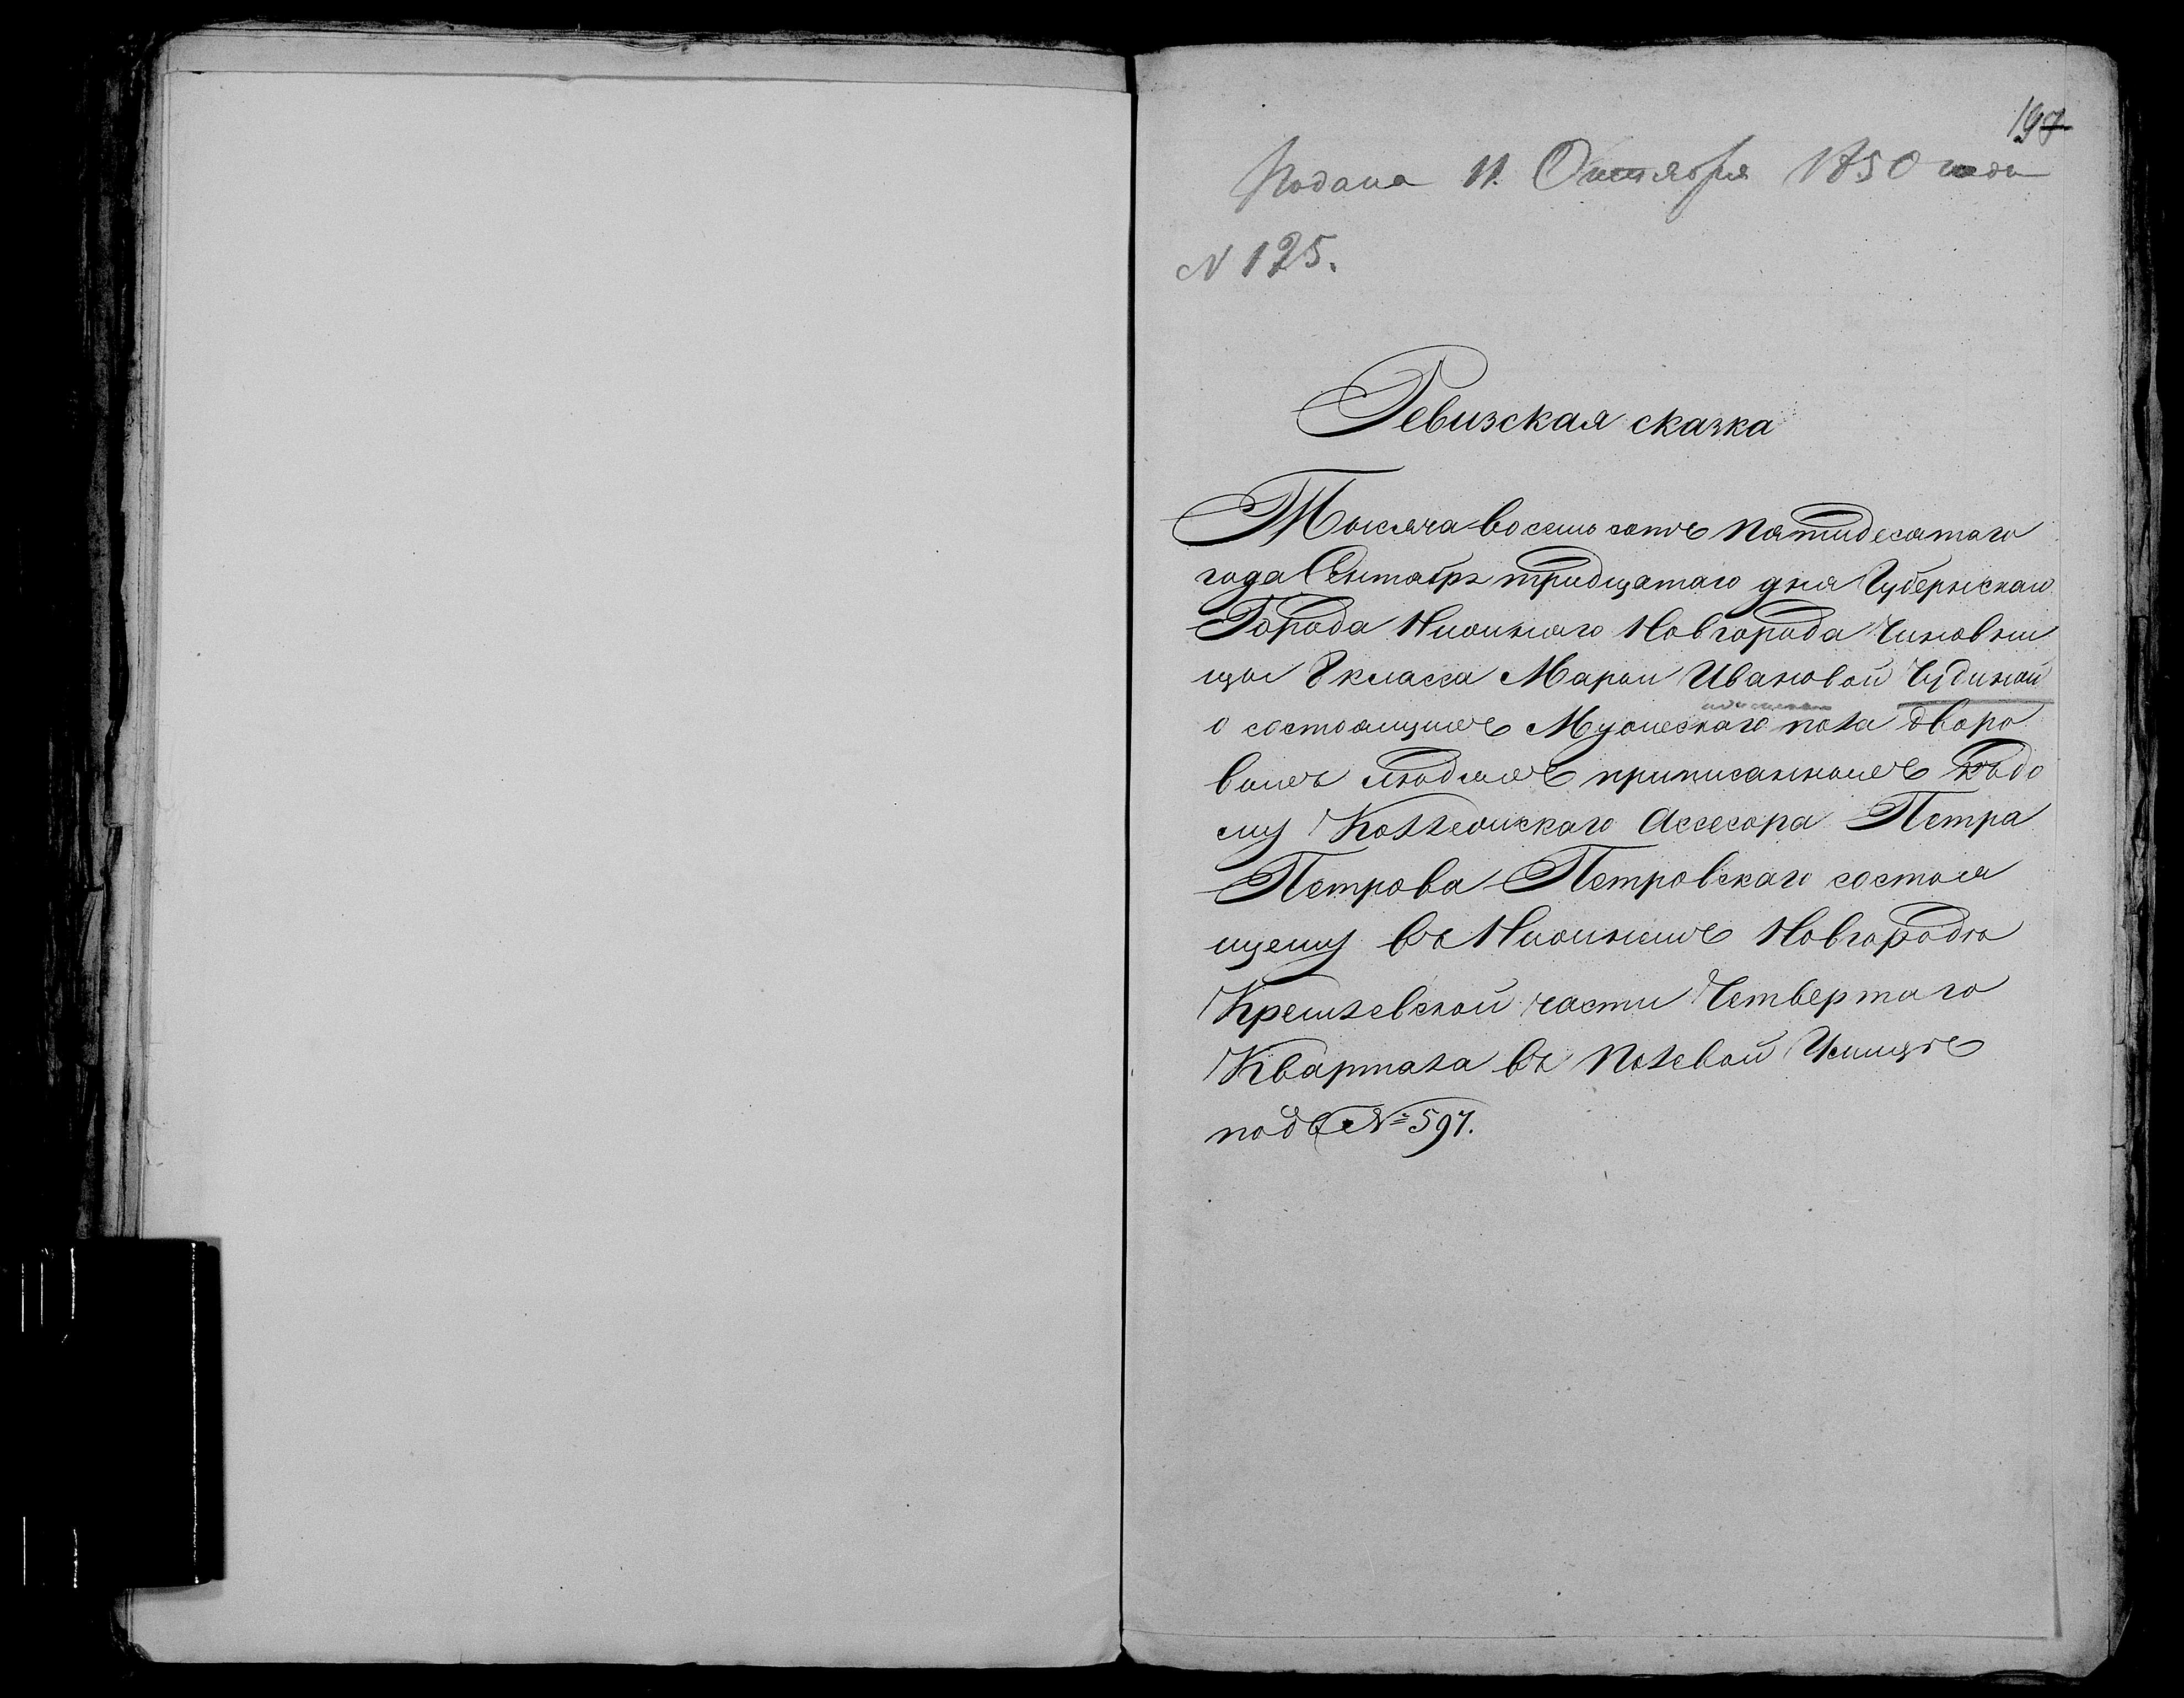 Подана 11. Октября 1850 года
N 125.
Ревизская сказка
Тысяча восемь сотъ пятидесятаго
года Сентябрь тридцатаго дня Губернскаго
Города Нижняго Новгорода Чиновни
цы 8 класса Марьи Ивановой Чудиной
о состоящихъ Мужескаго пола дворо
выхъ людяхъ приписанныхъ къ до
му Коллежскаго Ассесора Петра
Петрова Петровскаго состоя
щему въ Нижнемъ Новгородѣ
Кремлевской части Четвертаго
Квартала въ Полевой Улицѣ
подъ № 597.